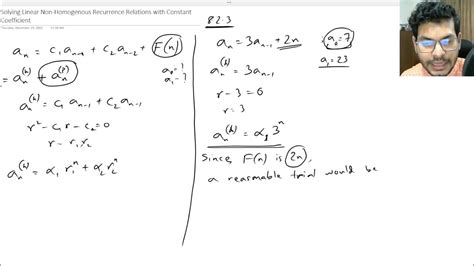 Solving Linear Non-Homogenous Recurrence Relations with Constant
Coefficient
aₙ = c₁aₙ₋₁ + c₂aₙ₋₂ + F(n)
= aₙ⁽ʰ⁾ + aₙ⁽ᵖ⁾
a₀ = ?
a₁ = ?
aₙ⁽ʰ⁾ = c₁aₙ₋₁ + c₂aₙ₋₂
r² - c₁r - c₂ = 0
aₙ⁽ʰ⁾ = α₁r₁ⁿ + α₂r₂ⁿ
8.2.3
aₙ = 3aₙ₋₁ + 2n, a₀ = 7
a₁ = 23
aₙ⁽ʰ⁾ = 3aₙ₋₁
r - 3 = 0
r = 3
aₙ⁽ʰ⁾ = α₁3ⁿ
Since, F(n) is 2n,
a reasonable trial would be